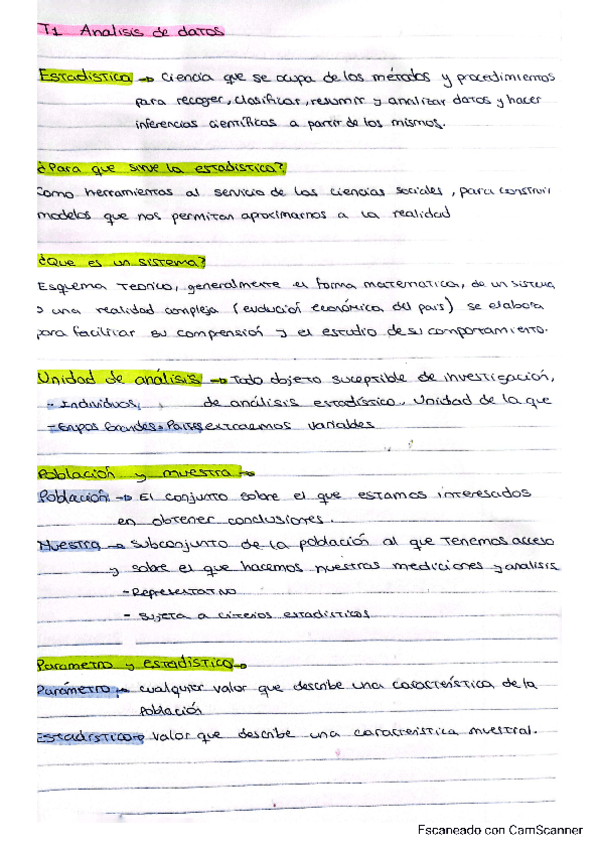 T1 Analisis de datos
Estadistica → Ciencia que se ocupa de los métodos y procedimientos
para recoger, clasificar, resumir y analizar datos y hacer
inferencias científicas a partir de los mismos.
¿Para que sirve la estadistica?
Como herramientas al servicio de las ciencias sociales, para construir
modelos que nos permitan aproximarnos a la realidad
¿Que es un sistema?
Esquema Teorico, generalmente en forma matematica, de un sistema
o una realidad compleja (evolución económica del pais) se elabora
para facilitar su comprensión y el estudio de su comportamiento.
Unidad de análisis → Todo objeto suceptible de investigación,
- Individuos, de análisis estadístico. Unidad de la que
- Grupos Grandes = Paises extraemos variables
Población y muestra →
Población → El conjunto sobre el que estamos interesados
en obtener conclusiones.
Muestra → Subconjunto de la población al que tenemos acceso
y sobre el que hacemos nuestras mediciones y analisis
- Representativo
- Sujeta a criterios estadísticos
Parametro y estadistico →
Parámetro → cualquier valor que describe una característica de la
Población
Estadístico → valor que describe una característica muestral.
Escaneado con CamScanner